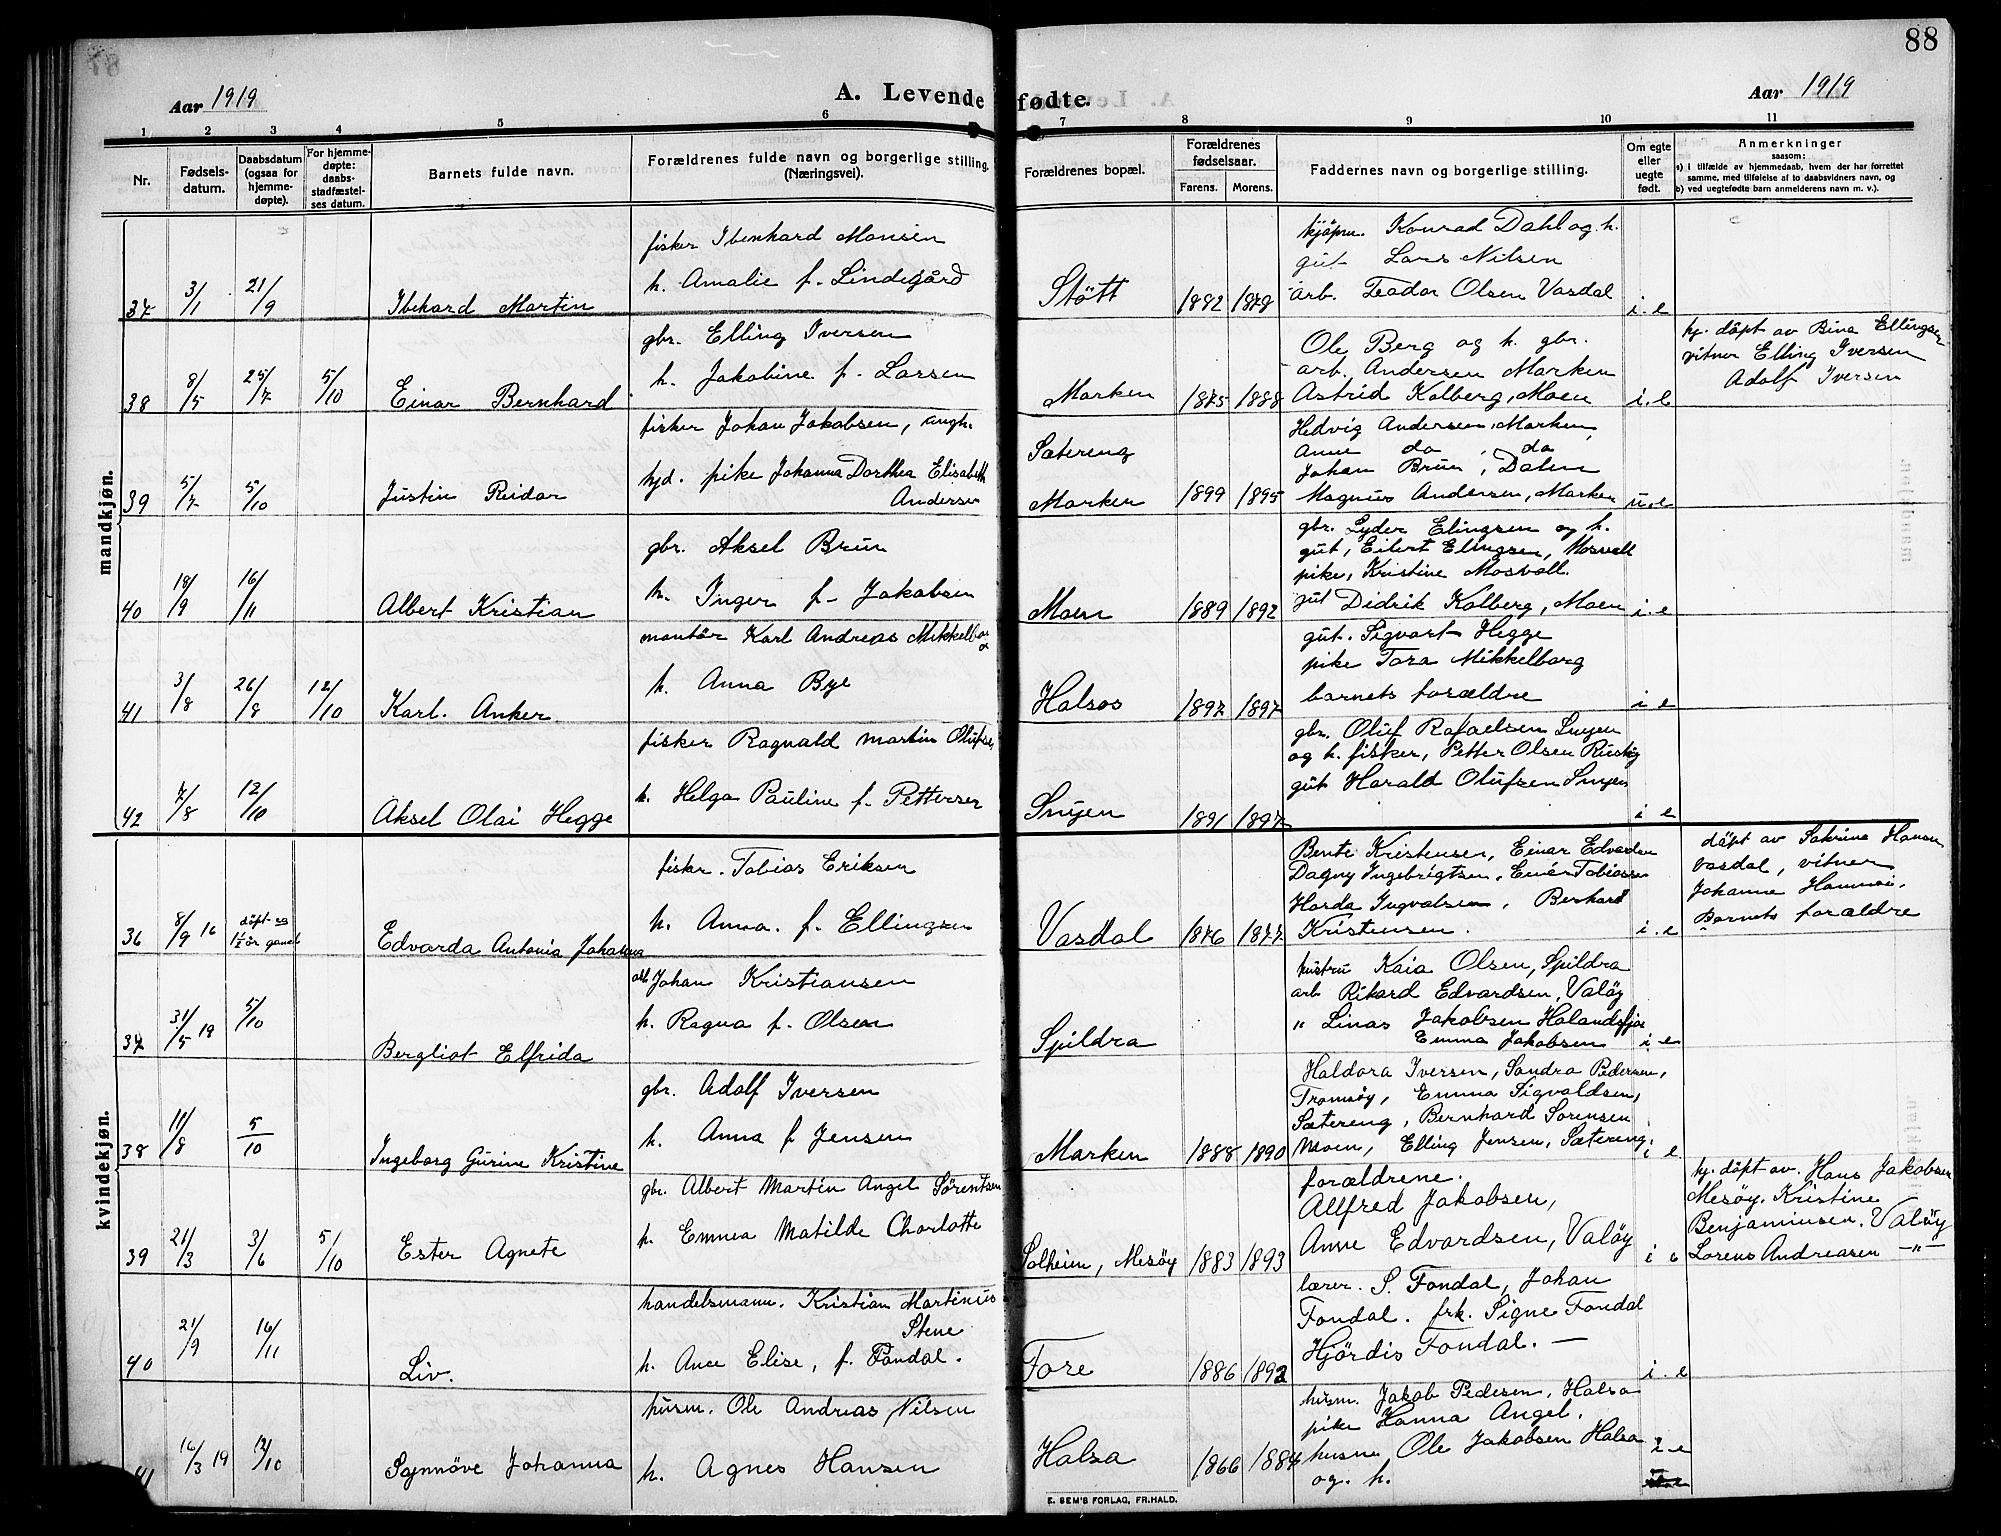 88
Aar 1919
A. Levende fødte.
Aar 1919
1 2 3 4 5 6 7 8 9 10 11
Nr.
Fødsels-
datum.
Daabsdatum
(ogsaa for
hjemme-
døpte).
For hjemme-
døpte:
daabs-
stadfæstel-
ses datum.
Barnets fulde navn.
Forældrenes fulde navn og borgerlige stilling.
(Næringsvei).
Forældrenes bopæl.
Forældrenes
fødselsaar.
Farens. Morens.
Faddernes navn og borgerlige stilling.
Om egte
eller
uegte
født.
Anmerkninger
saasom:
a) i tilfælde av hjemmedaab, hvem der har forrettet
samme, med tilføielse af to daabsvidners navn, og
b) ved uegtefødte barn anmelderens navn m. v.).
mandkjøn.
37 3/1 21/9 Ibekard Martin
fisker Ibenhard Monsen
h. Amalie f. Lindegård
Støtt 1882 1879
kjøpm. Konrad Dahl og h.
gut Lars Nilsen
arb. Teodor Olsen Vasdal
i. e
38 8/5 25/7 5/10 Einar Bernhard
gbr. Elling Iversen
h. Jakobine f. Larsen
Marken 1875 1888
Ole Berg og h. gbr.
arb. Andersen Marken
Astrid Kolberg, Moen
i. e
hj. døpt av Bina Ellingsen
vitner Elling Iversen
Adolf Iversen
39 5/7 5/10 Justin Reidar
fisker Johan Jakobsen, ungk.
hjd. pike Johanna Dorthea Elisabeth
Andersen
Sætereng
Marken 1899 1895
Hedvig Andersen, Marken,
Anne do, do
Johan Brun, Dalen
Magnus Andersen, Marken
u. e
40 18/9 16/11 Albert Kristian
gbr. Aksel Brun
h. Inger f. Jakobsen
Moen 1889 1892
gbr. Lyder Elingsen og h.
gut, Eilert Elingsen, Mosvoll
pike, Kristine Mosvoll.
gut Didrik Kolberg, Moen
i. e
41 3/8 26/8 12/10 Karl. Anker
montør Karl Andreas Mikkelborg
h. Anna Bye
Halsos 1897 1897
gut. Sigvart Hegge
pike Tora Mikkelborg
barnets forældre
i e
42 7/8 12/10 Aksel Olai Hegge
fisker Ragnald Martin Olufsen
h. Helga Pauline f. Pettersen
Snyen 1891 1897
gbr. Oluf Rafaelsen Snyen
og h. fisker, Petter Olsen
gut Harald Olufsen Snyen
i e
kvindekjøn.
36 8/9 16 døpt
1½ år gamel Edvarda Antonia Johanna
fisker. Tobias Eriksen
h. Anna. f. Ellingsen
Vasdal 1876 1877
Bente Kristensen, Einar Edvardsen
Dagny Ingebrigtsen, Einar Tobiassen
Harda Ingvalsen, Berhard
Kristensen.
i. e
døpt av Sakrina Hansen
Vasdal, vitner
Johanne
Barnets forældre
37 31/5 19 5/10 Bergliot Elfrida
arb. Johan Kristiansen
h. Ragna f. Olsen
Spildra
hustru Kaia Olsen, Spildra
arb Rikard Edvardsen, Valøy
" Linas Jakobsen Holandsfjor
Emma Jakobsen
i e
38 11/8 5/10 Ingeborg Gurine Kristine
gbr. Adolf Iversen
h. Anna f Jensen
Marken 1888 1890
Haldora Iversen, Sandra Pedersen,
Tromsøy, Emma Sigvaldsen,
Sætereng, Bernhard Sorensen
Moen, Elling Jensen, Sætereng.
i e
39 21/3 3/6 5/10 Ester Agnete
gbr. Albert Martin Angel Sørentsen
h. Emma Matilde Charlotte
Solheim, Mesøy 1883 1893
forældrene.
Allfred Jakobsen,
Anne Edvardsen, Valøy
i e
hj. døpt av. Hans Jakobsen
Mesøy. Kristine
Benjaminsen. Valøy
Lorens Andreasen —"—
40 21/9 16/11 Liv.
handelsmann. Kristian Martinus
Stene
h. Ane Elise, f. Fondal.
Fore 1886 1892
lærer. S. Fondal, Johan
Fondal. frk. Signe Fondal
Hjördis Fondal. —
i. e
41 16/3 19 12/10 Synnøve Johanna
husm. Ole Andreas Nilsen
h. Agnes Hansen
Halsa 1866 1884
husm. Jakob Pedersen, Halsa
pike Hanna Angel.
husm Ole Jakobsen Halsa
og. h.
E. SEM'S FORLAG, FR.HALD.